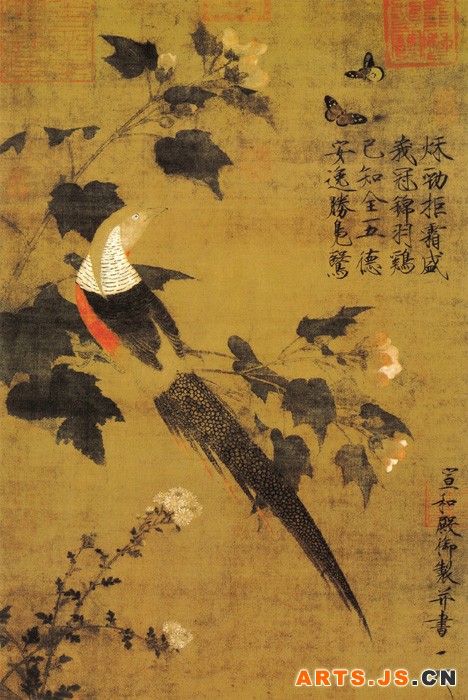 秋勁拒霜盛
峩冠錦羽鷄
已知全五德
安逸勝鳧鷖
宣和殿御製并書
ARTS.JS.CN